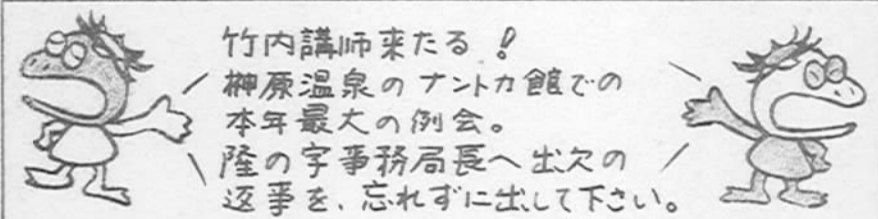 竹内講師来たる！
榊原温泉のナントカ館での
本年最大の例会。
隆の字事務局長へ出欠の
返事を、忘れずに出して下さい。